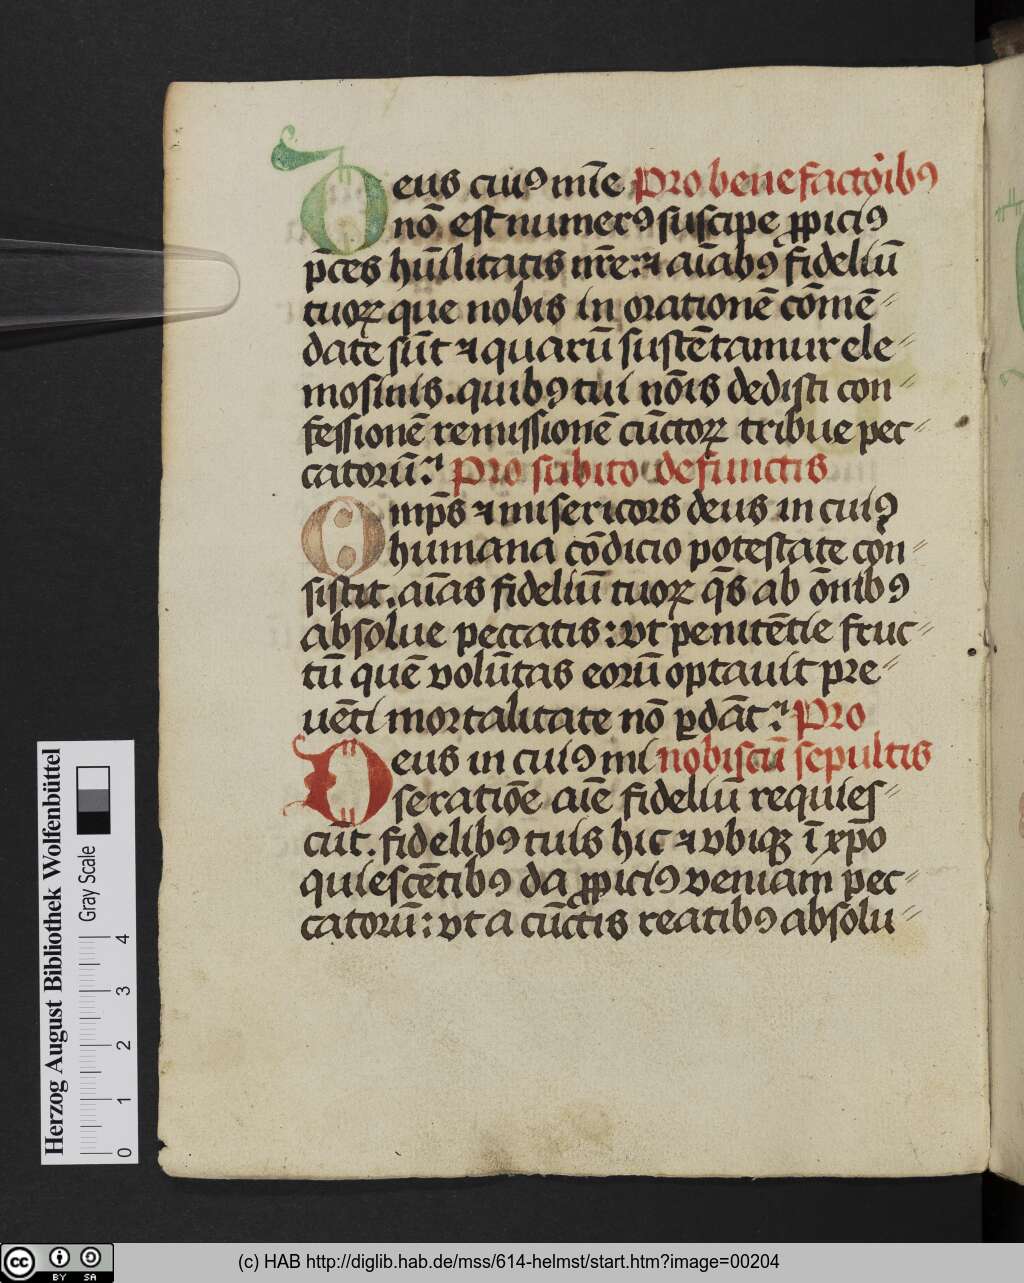 Deus cuiꝰ mīe Pro benefactōibꝰ
nō est numerꝰ suscipe ꝓpiciꝰ
p̄ces hūilitatis nr̄e: ⁊ aīabꝰ fideliū
tuoꝝ que nobis in orationē cōmē⸗
date sūt ⁊ quarū sustētamur ele⸗
mosinis. quibꝰ tui nōis dedisti con⸗
fessionē remissionē cūctoꝝ tribue pec⸗
catorū: Pro subito defunctis
Omp̄s ⁊ misericors deus in cuiꝰ
humana cōdicio potestate con⸗
sistit. aīas fideliū tuoꝝ q̄s ab ōnibꝰ
absolue peccatis: vt penitētie fruc⸗
tū quē volūtas eorū optauit pre⸗
uēti mortalitate nō ꝑdāt: Pro
Deus in cuiꝰ mi nobiscū sepultis
seratiōe aīe fideliū requies⸗
cūt. fidelibꝰ tuis hic ⁊ vbiqꝫ ī xp̄o
quiescētibꝰ da ꝓpiciꝰ veniam pec⸗
catorū: vt a cūctis reatibꝰ absolu⸗
Herzog August Bibliothek Wolfenbüttel
Gray Scale
0 1 2 3 4
cc BY SA
(c) HAB http://diglib.hab.de/mss/614-helmst/start.htm?image=00204